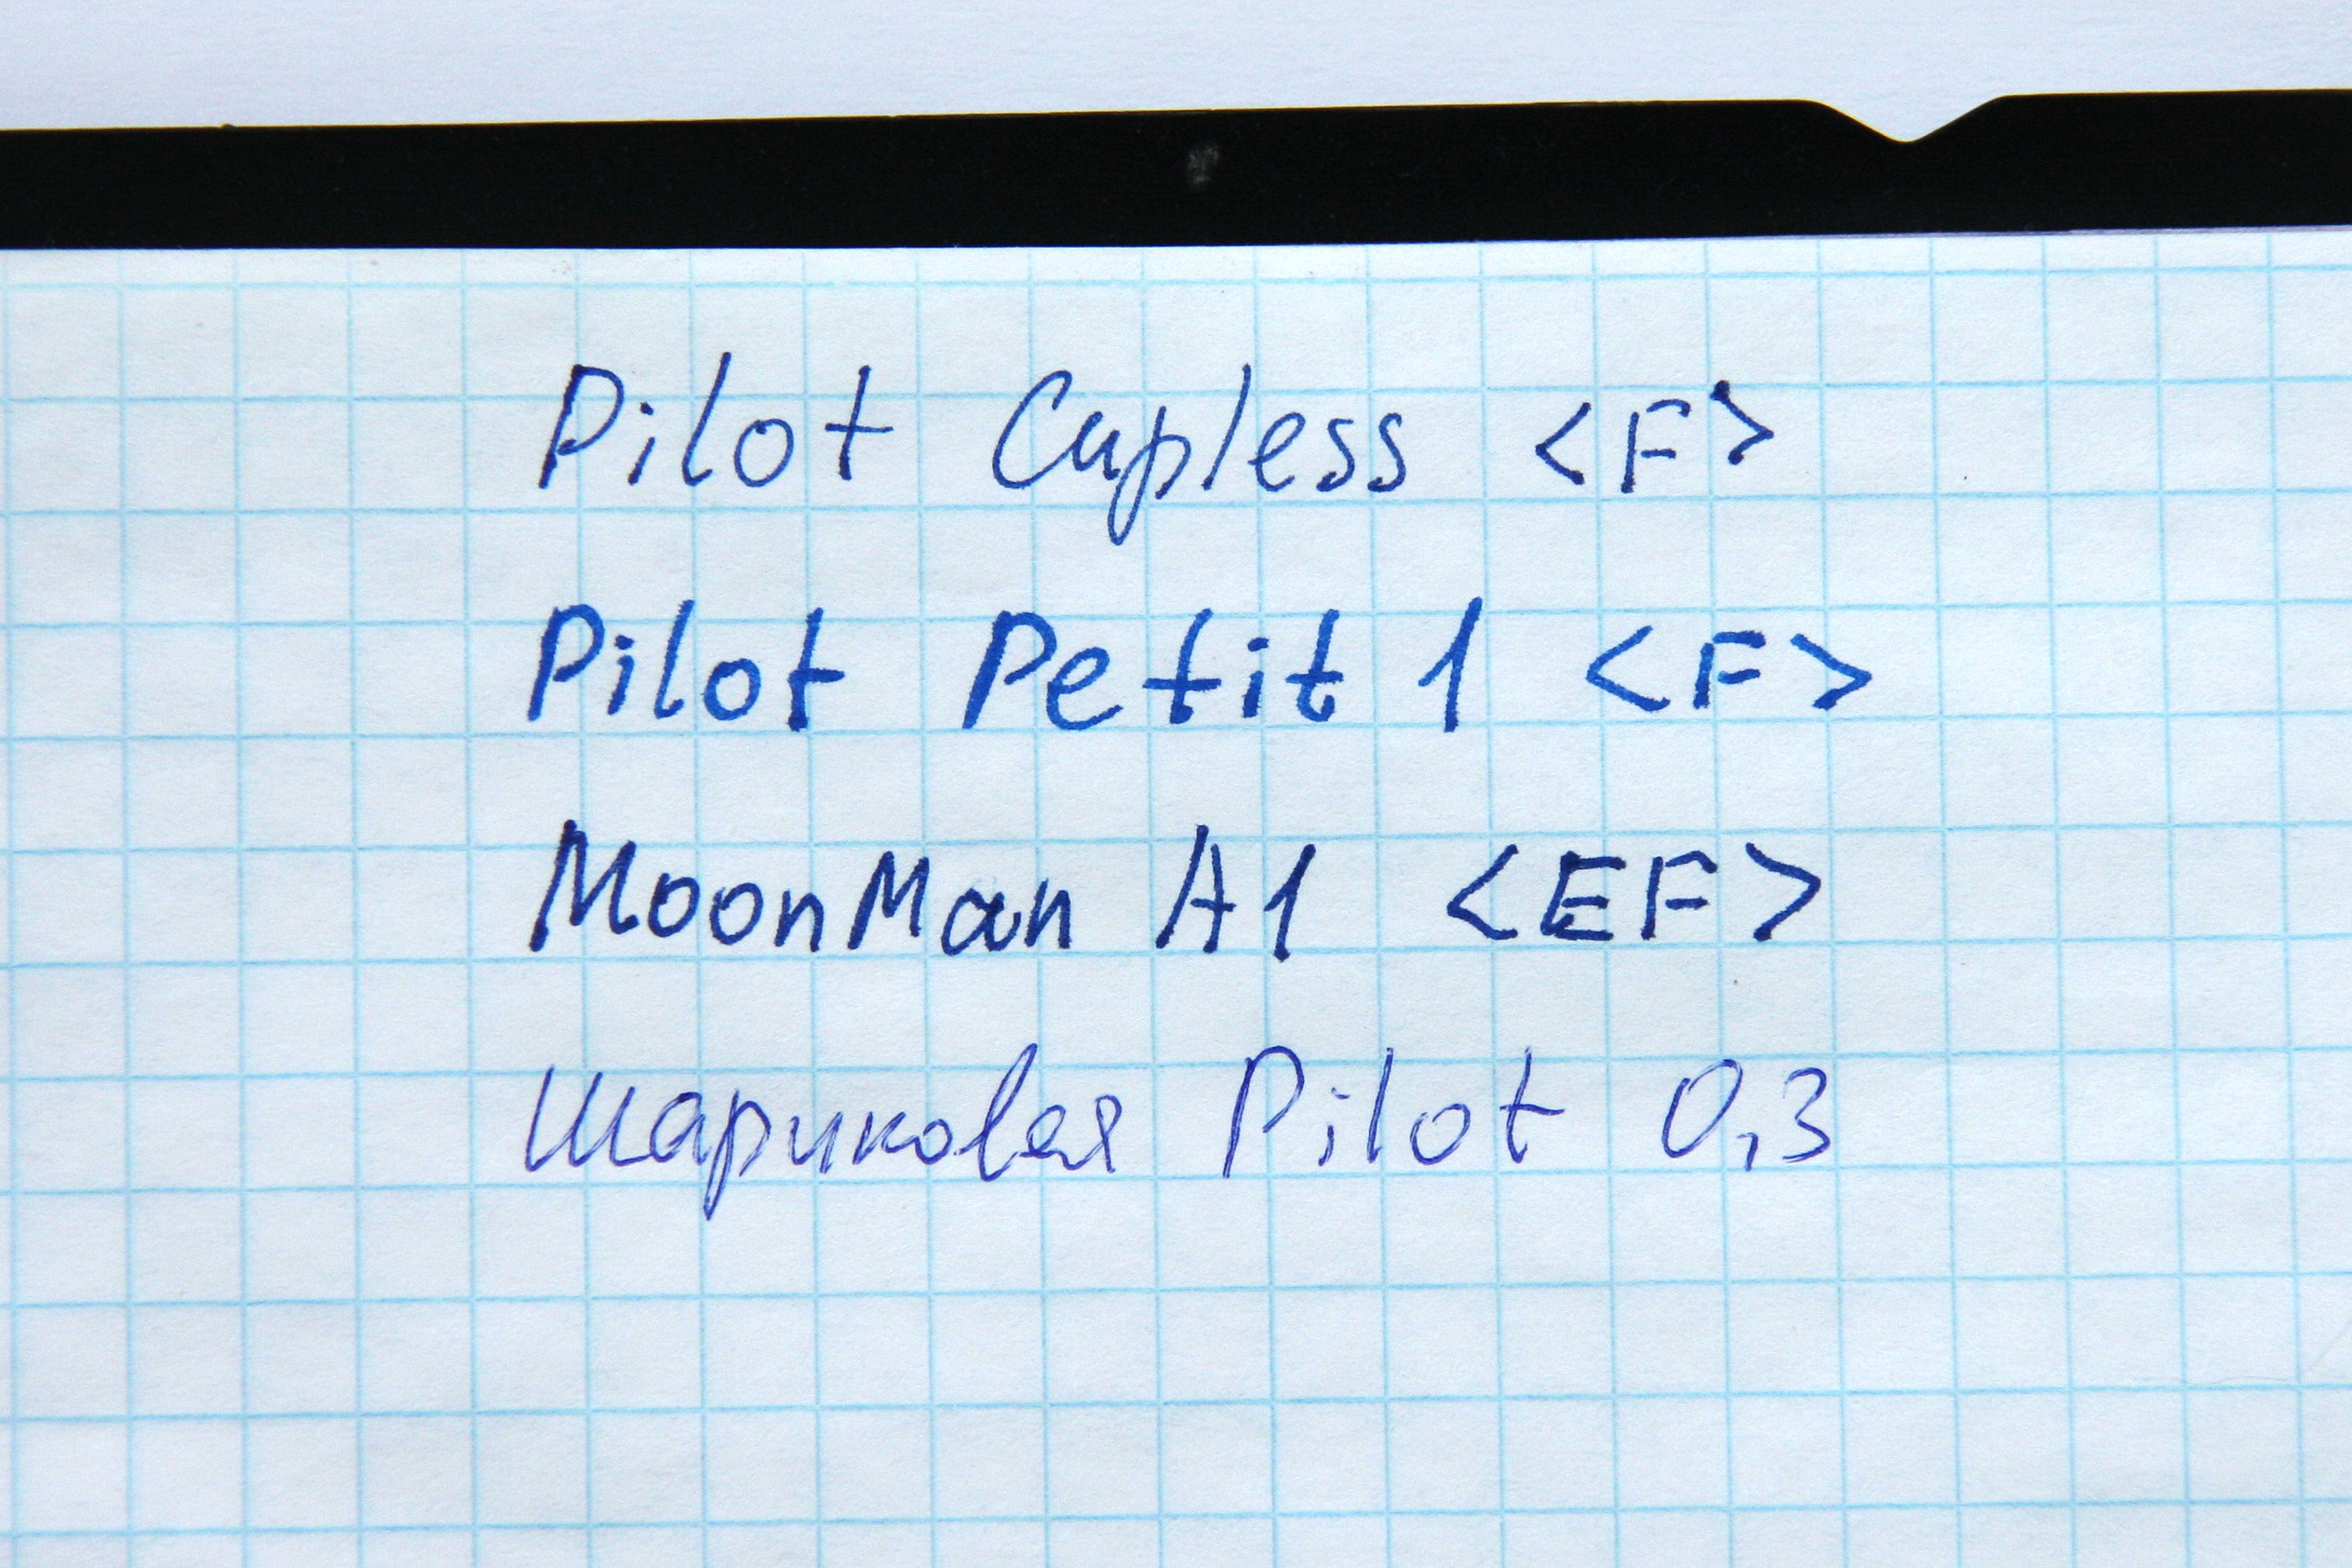 Pilot Capless <F>
Pilot Petit 1 <F>
MoonMan A1 <EF>
Шариковая Pilot 0,3